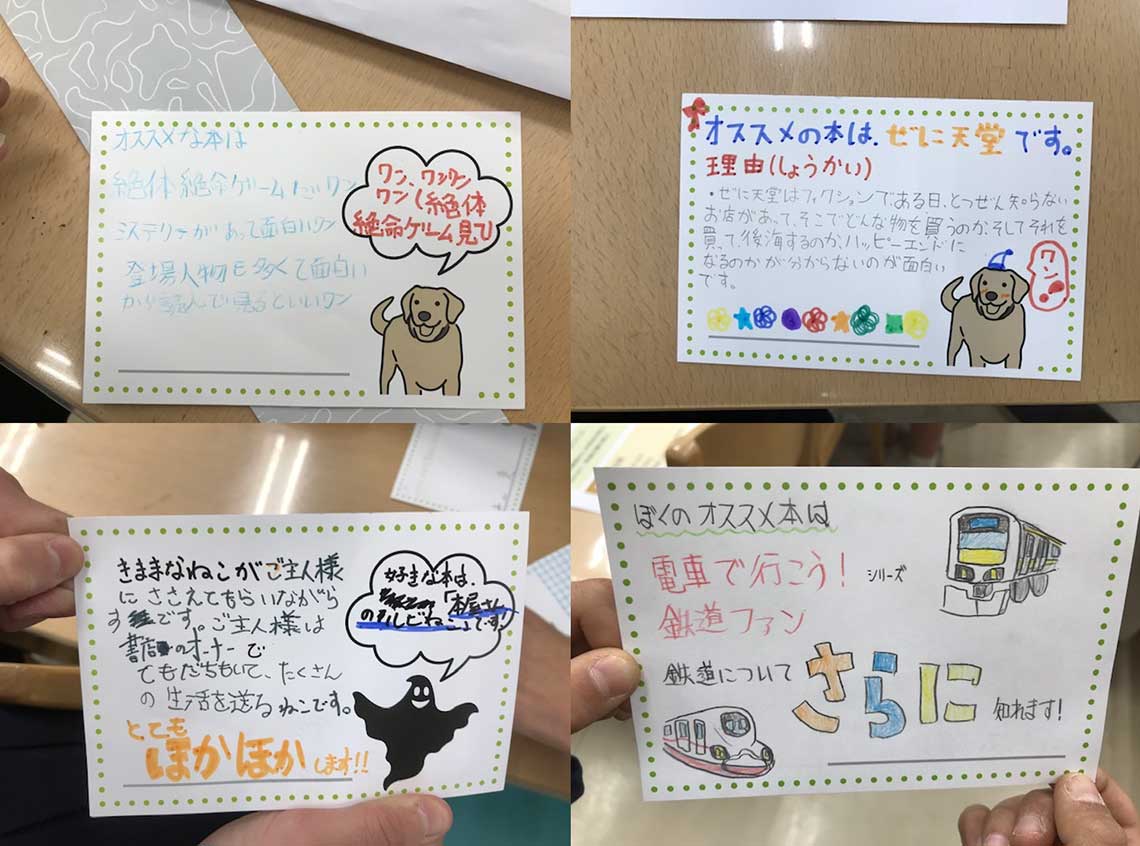 オススメな本は
絶体絶命ゲームだワン
ミステリーがあって面白いワン
登場人物も多くて面白い
から読んで見るといいワン
ワン、ワンワン
ワン(絶体
絶命ゲーム見ロ
オススメの本は、ぜに天堂です。
理由(しょうかい)
・ぜに天堂はフィクションで、ある日、とつぜん知らない
お店があって、そこでどんな物を買うのか、そしてそれを
買って、後海するのか、ハッピーエンドに
なるのかが分からないのが面白い
です。
ワン!
きままなねこがご主人様
にささえてもらいながら
す です。ご主人様は
書店のオーナーで
ともだちもいて、たくさん
の生活を送るねこです。
とても
ぽかぽかします!!
好きな本は、
「本屋さん
のルビねこ」です!
ぼくのオススメ本は
電車で行こう! シリーズ
鉄道ファン
鉄道について さらに 知れます!